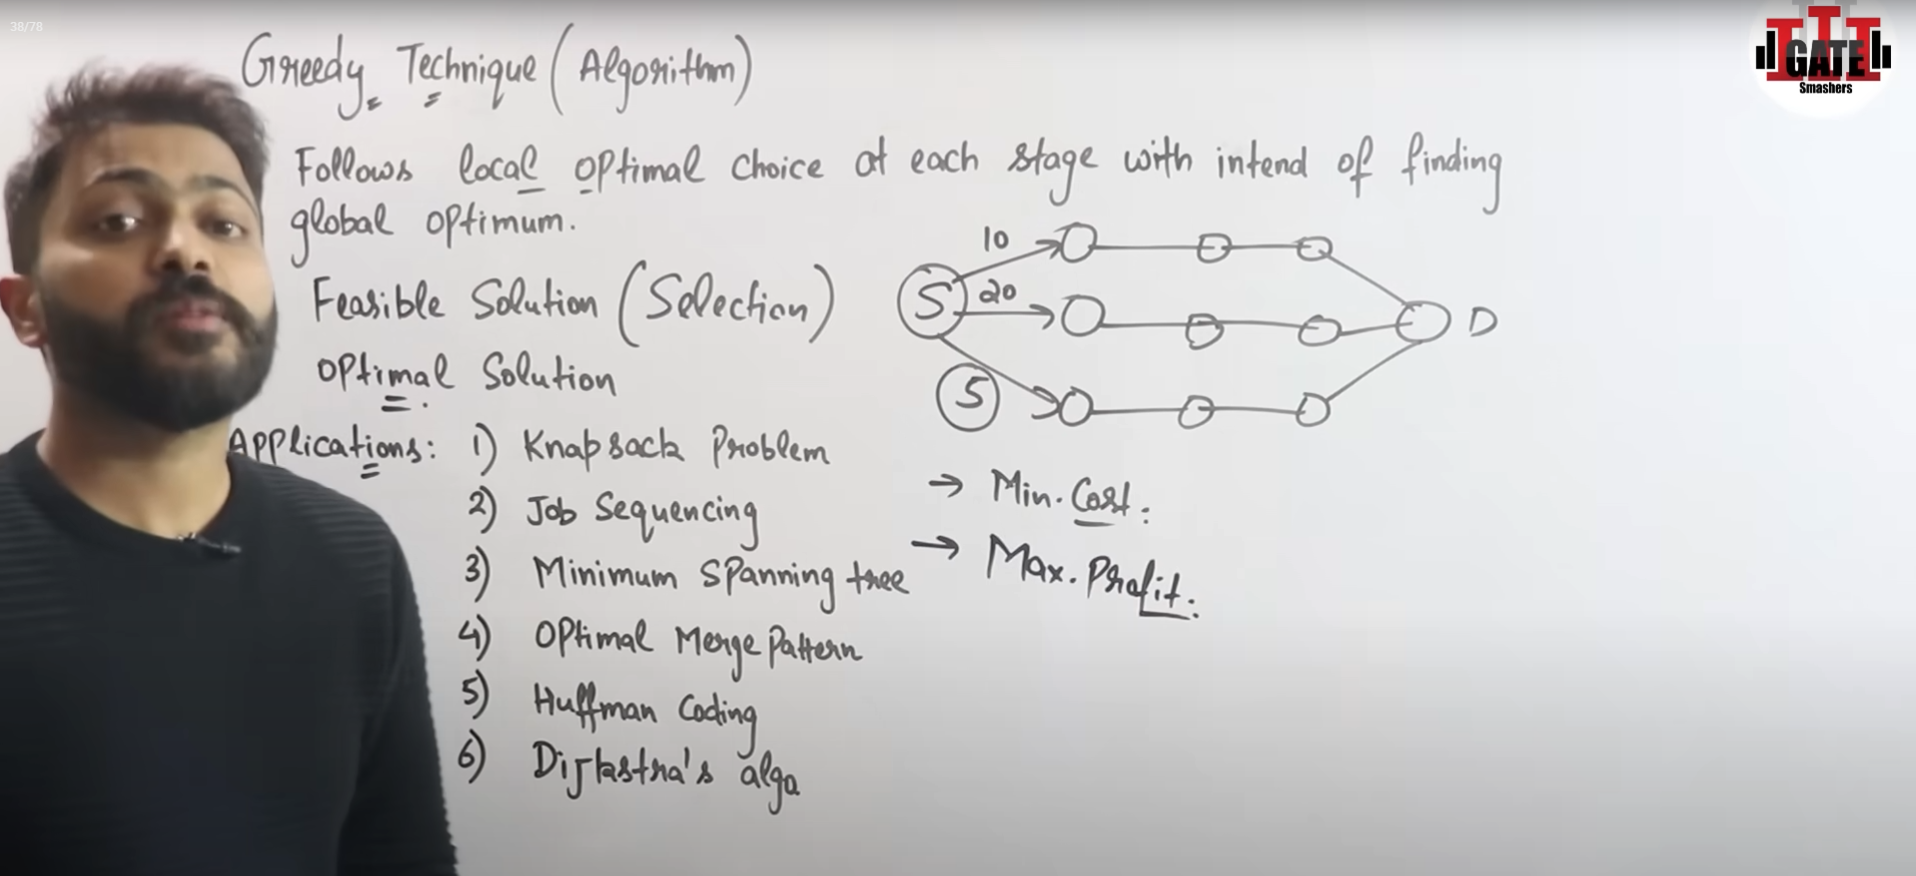 38/78
GATE
Smashers
Greedy Technique (Algorithm)
Follows local optimal choice at each stage with intend of finding
global optimum.
Feasible Solution (Selection)
Optimal Solution
Applications: 1) Knapsack Problem
2) Job Sequencing
3) Minimum Spanning tree
4) Optimal Merge Pattern
5) Huffman Coding
6) Dijkastra's algo
10
S 20
5
D
→ Min. Cost.
→ Max. Profit.